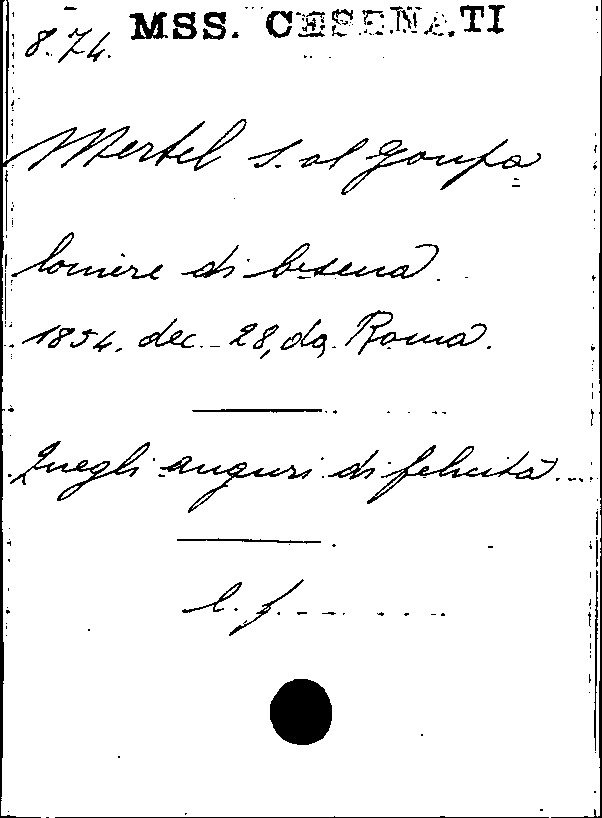 MSS. CESENATI
8.74.
Mertel S. al Gonfa=
loniere di Cesena.
1854. dec. 28, da Roma.
Quegli auguri di felicità...
l. f. ......